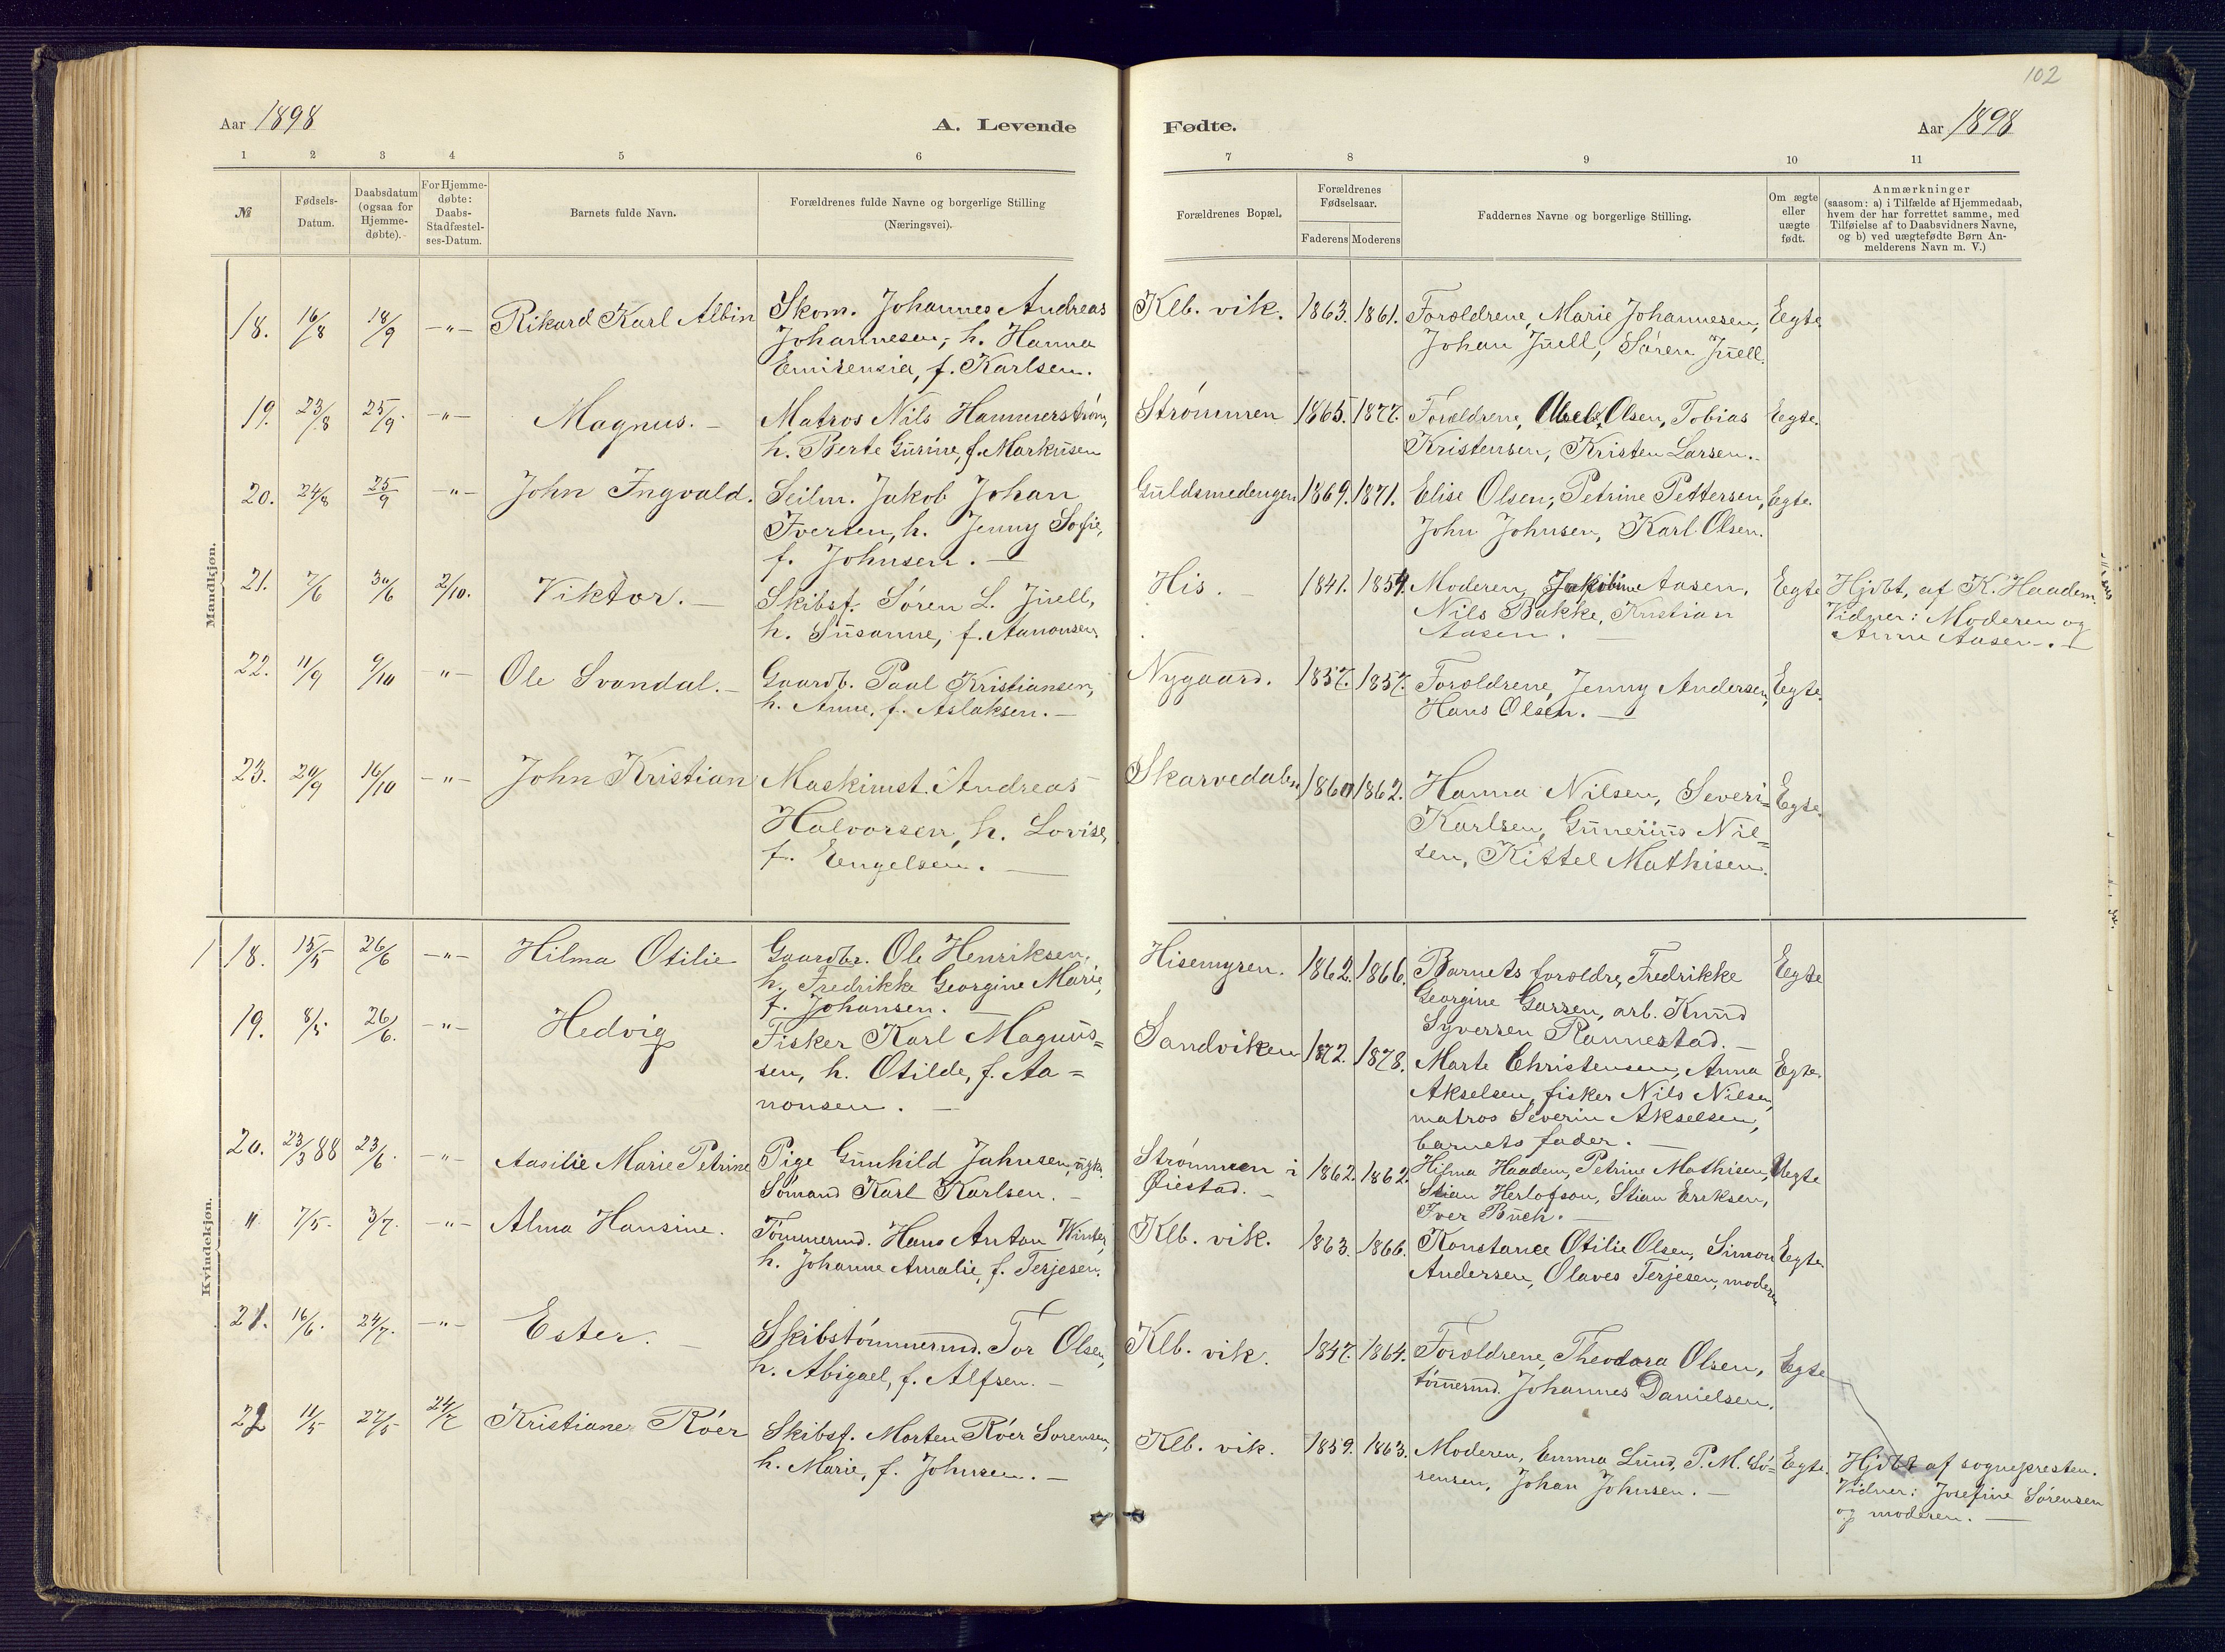 102
Aar 1898
A. Levende
Fødte.
Aar 1898
1 2 3 4 5 6 7 8 9 10 11
№
Fødsels-
Datum.
Daabsdatum
(ogsaa for
Hjemme-
døbte).
For Hjemme-
døbte:
Daabs-
Stadfæstel-
ses-Datum.
Barnets fulde Navn.
Forældrenes fulde Navne og borgerlige Stilling
(Næringsvei).
Forældrenes Bopæl.
Forældrenes
Fødselsaar.
Faderens Moderens
Faddernes Navne og borgerlige Stilling.
Om ægte
eller
uægte
født.
Anmærkninger
(saasom: a) i Tilfælde af Hjemmedaab,
hvem der har forrettet samme, med
Tilføielse af to Daabsvidners Navne,
og b) ved uægtefødte Børn An-
melderens Navn m. V.)
Mandkjøn.
18. 16/8 18/9 -"- Rikard Karl Albin Skom. Johannes Andreas
Johannesen, h. Hanna
f. Karlsen.
Klb. vik. 1863. 1861. Forældrene, Marie Johannesen, Egte
Johan Juell, Søren Juell.
19. 23/8 25/9. -"- Magnus. - Matros Nils Hammerstrøm,
h. Berte Gurine, f. Markusen
Strømmen 1865. 1877. Forældrene, Olsen, Tobias Egte.
Kristensen, Kristen Larsen.
20. 24/8 25/9 -"- John Ingvald. Seilm. Jakob Johan
Iversen, h. Jenny Sofie,
f. Johnsen. -
Guldsmedengen 1869. 1871. Elise Olsen, Petrine Pettersen, Egte.
John Johnsen, Karl Olsen.
21. 7/6 30/6 2/10. Viktor. - Skibsf. Søren L. Juell,
h. Susanne, f. Aanonsen.
His. - 1841. 1854. Moderen, Jakobine Aasen, Egte Hjdbt, af K. Haadem.
Nils Bakke, Kristian Vidner: Moderen og
Aasen. - Anne Aasen. -
22. 11/9 9/10 -"- Ole Svandal. - Gaardb. Paal Kristiansen,
h. Anne, f. Aslaksen. -
Nygaard. 1857. 1857. Forældrene, Jenny Andersen, Egte.
Hans Olsen. -
23. 20/9 16/10 -"- John Kristian Maskinist. Andreas
Halvorsen, h. Lovise,
f. Engelsen. -
Skarvedalen 1860 1862. Hanna Nilsen, Severi- Egte.
Karlsen, Gunerius Nil=
sen, Kittel Mathisen.
Kvindekjøn.
18. 15/5 26/6 -"- Hilma Otilie Gaardbr. Ole Henriksen,
h. Fredrikke Georgine Marie,
f. Johansen. -
Hisemyren. 1862. 1866. Barnets forældre, Fredrikke Egte
Georgine Garsen, arb. Knud
Syversen Rannestad. -
19. 8/5 26/6. -"- Hedvig Fisker Karl Magnus=
sen, h. Otilde, f. Aa=
nonsen. -
Sandviken 1872. 1878. Marte Christensen, Anna Egte.
Akselsen, fisker Nils Nilsen,
matros Severin Akselsen,
barnets fader. -
20. 23/3 88 23/6. -"- Aasilie Marie Petrine Pige Gunhild Jahnsen, ugk.
Sømand Karl Karlsen. -
Strømmen i 1862. 1862. Hilma Haadem, Petrine Mathisen, Uegte
Øiestad. - Stian Herlofson, Stian Eriksen,
Iver Buch. -
" 7/5. 3/7. -"- Alma Hansine. Tømmermd. Hans Anton Winter,
h. Johanne Amalie, f. Terjesen.
Klb. vik. 1863. 1866. Konstance Otilie Olsen, Simon Egte
Andersen, Olaves Terjesen, moderen
21. 16/6. 24/7. -"- Ester. - Skibstømmermd. Tor Olsen,
h. Abigael, f. Alfsen. -
Klb. vik. 1847. 1864. Forældrene, Theodora Olsen, Egte
tømmermd. Johannes Danielsen.
22 11/5 27/5 24/7 Kristiane Róer Skibsf. Morten Róer Sørensen,
h. Marie, f. Johnsen. -
Klb. vik. 1859. 1863. Moderen, Emma Lund, P. M. Sø- Egte. Hjdbt af sognepresten.
rensen, Johan Johnsen. - Vidner: Josefine Sørensen
og moderen. -